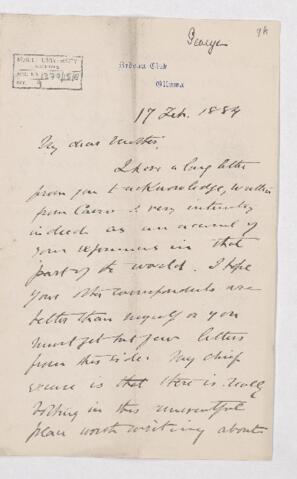 George
McGILL UNIVERSITY
ACC. NO.
REF.
Rideau Club
Ottawa
17 Feb. 1884
My dear Mother,
I have a long letter
from you to acknowledge, written
from Cairo & very interesting
indeed as an account of
your experiences in that
part of the world. I hope
your other correspondents are
better than myself or you
must get but few letters
from this side. My chief
excuse is that there is really
nothing in this uneventful
place worth writing about